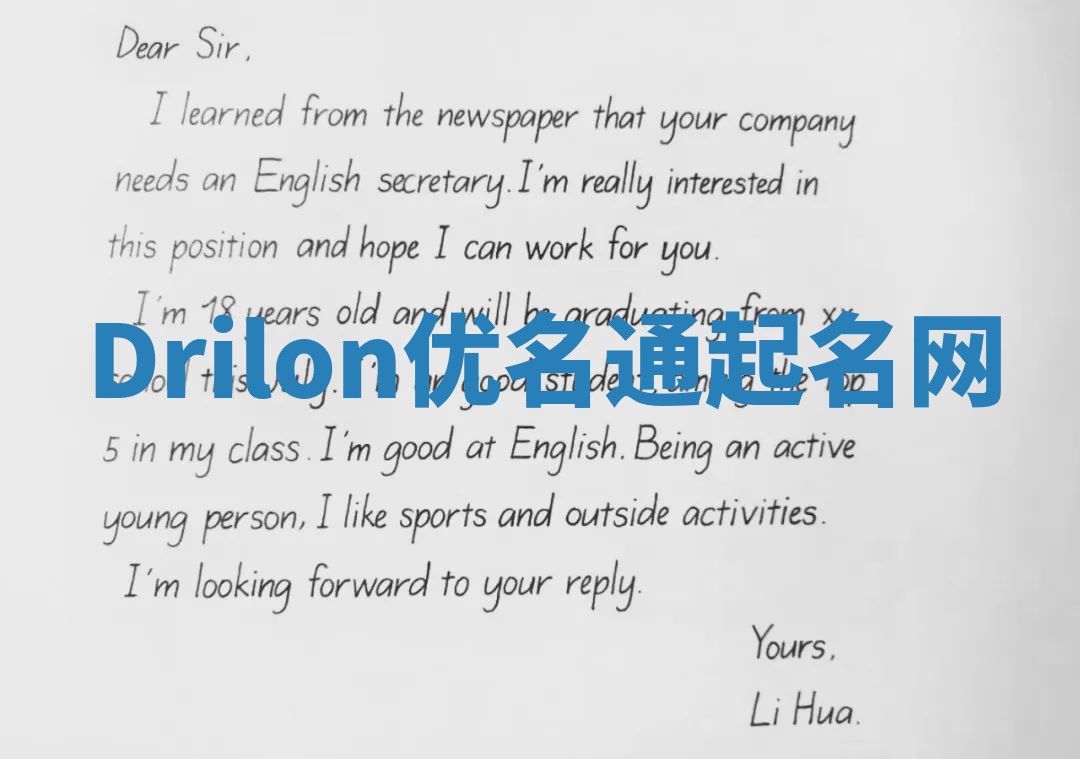 Dear Sir,
I learned from the newspaper that your company
needs an English secretary. I'm really interested in
this position and hope I can work for you.
I'm 18 years old and will be graduating from xx
Drilon优名通起名网
school this July. I'm a good student, among the top
5 in my class. I'm good at English. Being an active
young person, I like sports and outside activities.
I'm looking forward to your reply.
Yours,
Li Hua.